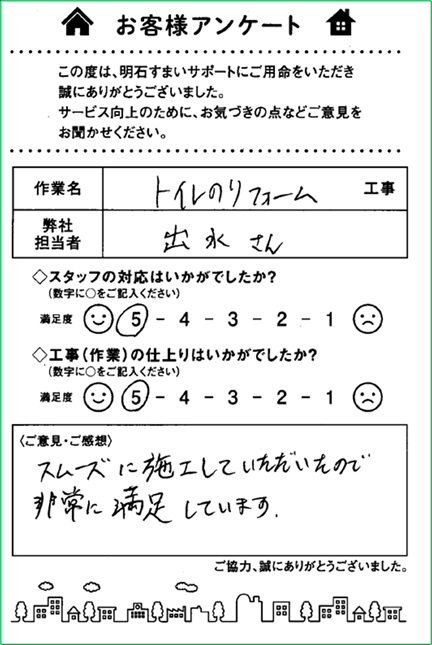 お客様アンケート
この度は、明石すまいサポートにご用命をいただき
誠にありがとうございました。
サービス向上のために、お気づきの点などご意見を
お聞かせください。
作業名 トイレのリフォーム 工事
弊社
担当者 出水さん
◇スタッフの対応はいかがでしたか?
(数字に○をご記入ください)
満足度 5 - 4 - 3 - 2 - 1
◇工事(作業)の仕上りはいかがでしたか?
(数字に○をご記入ください)
満足度 5 - 4 - 3 - 2 - 1
〈ご意見・ご感想〉
スムーズに施工していただいたので
非常に満足しています.
ご協力、誠にありがとうございました。